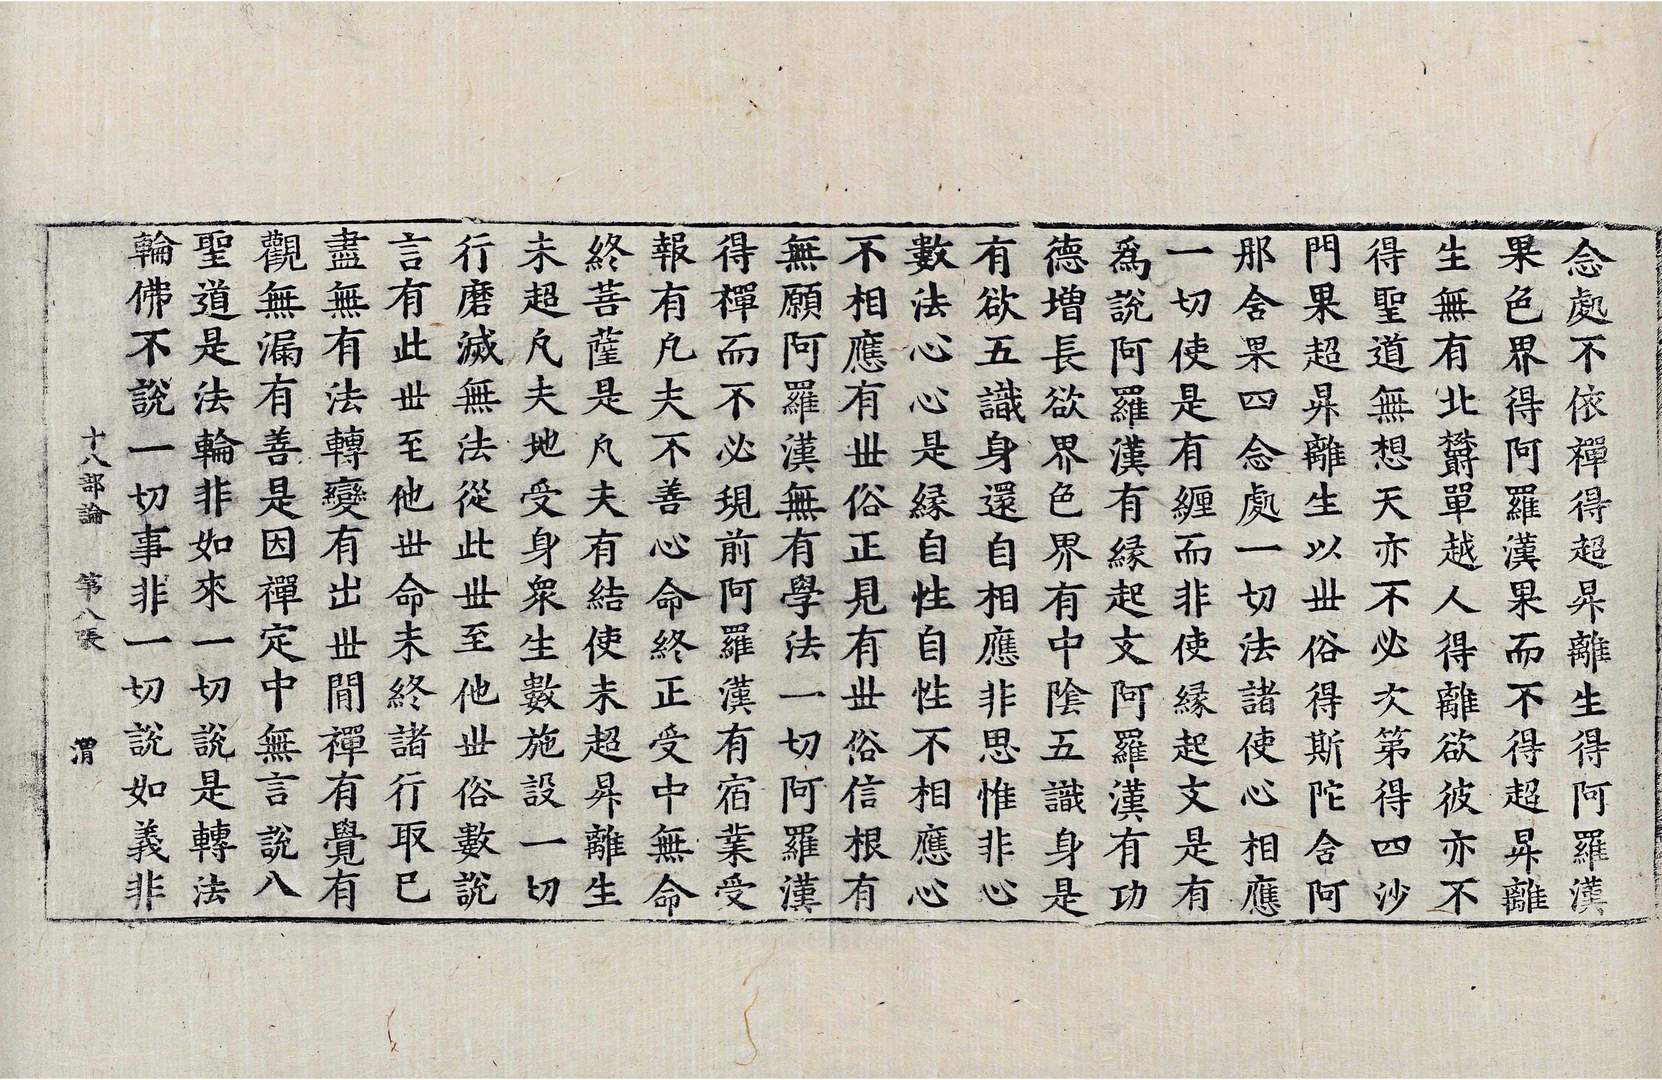 念處不依禪得超昇離生得阿羅漢
果色界得阿羅漢果而不得超昇離
生無有北欝單越人得離欲彼亦不
得聖道無想天亦不必次第得四沙
門果超昇離生以丗俗得斯陀含阿
那舍果四念處一切法諸使心相應
一切使是有纏而非使縁起支是有
爲說阿羅漢有縁起支阿羅漢有功
德増長欲界色界有中陰五識身是
有欲五識身還自相應非思惟非心
數法心心是縁自性自性不相應心
不相應有丗俗正見有丗俗信根有
無願阿羅漢無有學法一切阿羅漢
得禪而不必現前阿羅漢有宿業受
報有凡夫不善心命終正受中無命
終菩薩是凡夫有結使未超昇離生
未超凡夫地受身衆生數施設一切
行磨滅無法從此丗至他丗俗數說
言有此丗至他丗命未終諸行取已
盡無有法轉變有出丗閒禪有覺有
觀無漏有善是因禪定中無言說八
聖道是法輪非如來一切說是轉法
輪佛不說一切事非一切說如義非
十八部論　第八張　渭